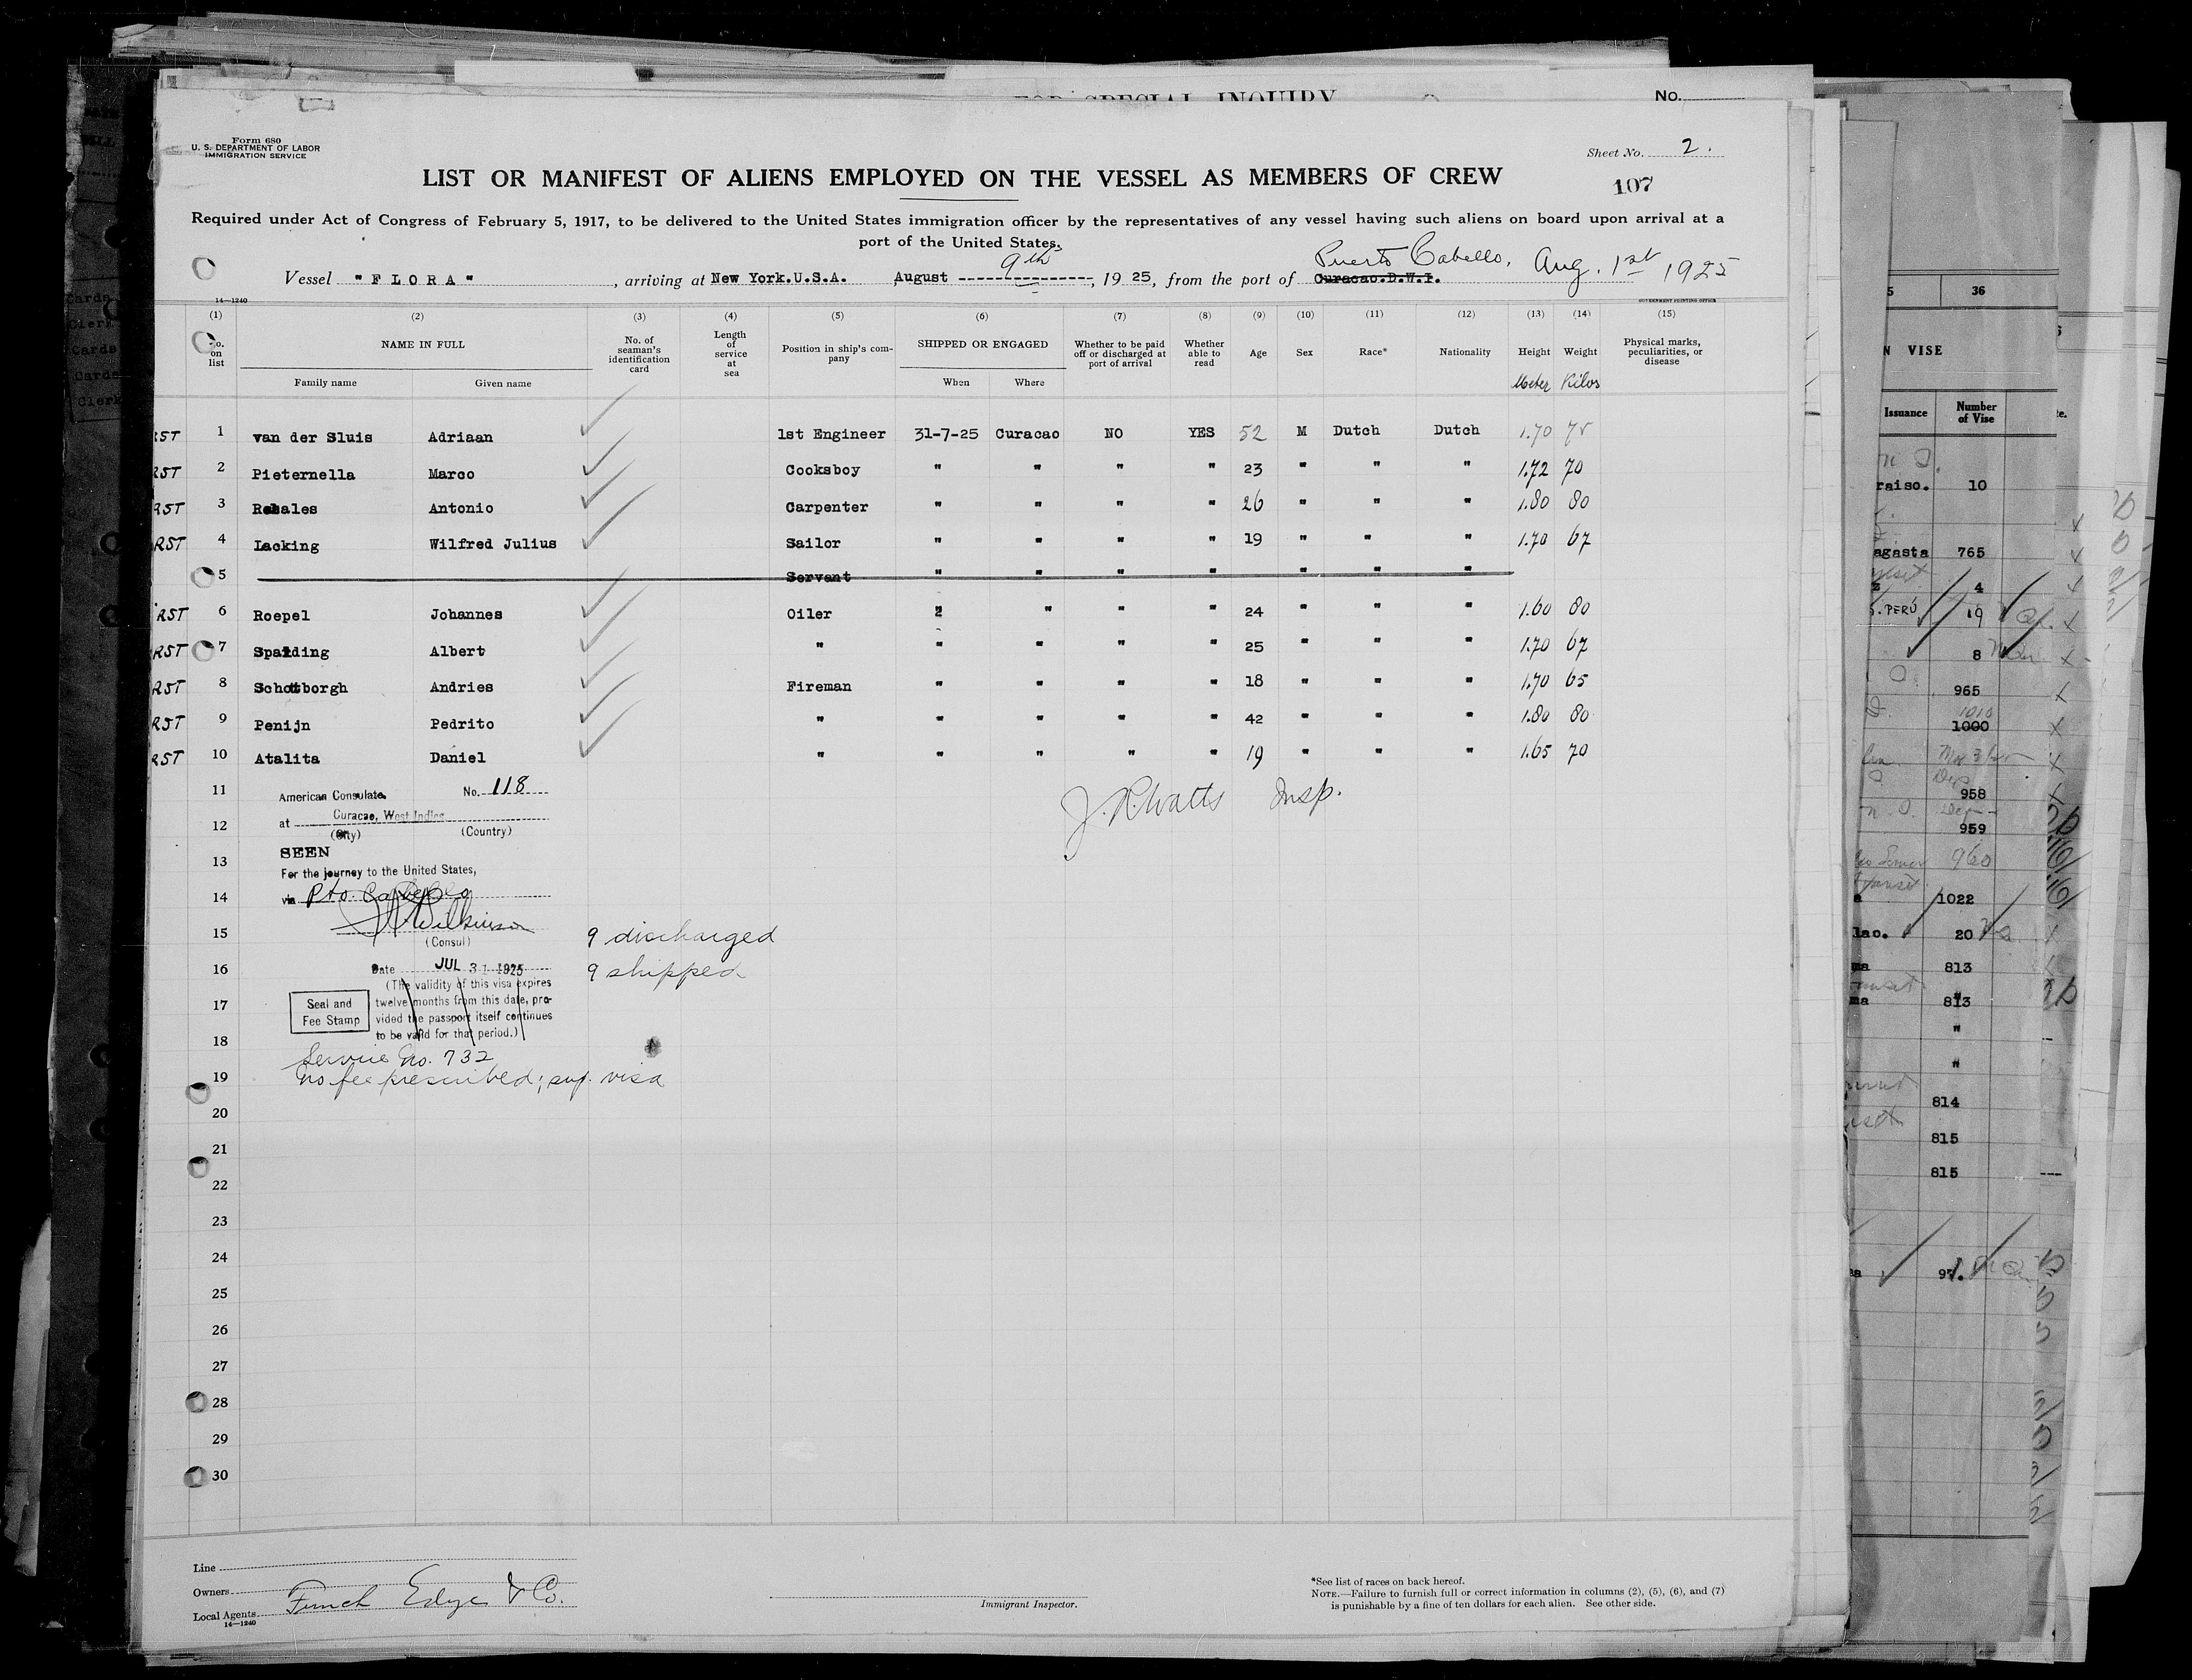 FOR SPECIAL INQUIRY
No.
Form 680
U. S. DEPARTMENT OF LABOR
IMMIGRATION SERVICE
Sheet No. 2.
LIST OR MANIFEST OF ALIENS EMPLOYED ON THE VESSEL AS MEMBERS OF CREW
107
Required under Act of Congress of February 5, 1917, to be delivered to the United States immigration officer by the representatives of any vessel having such aliens on board upon arrival at a
port of the United States.
Puerto Cabello, Aug. 1st 1925
Vessel "FLORA", arriving at New York.U.S.A. August 9th, 1925, from the port of Curacao.D.W.I.
14-1240
GOVERNMENT PRINTING OFFICE
(1) (2) (3) (4) (5) (6) (7) (8) (9) (10) (11) (12) (13) (14) (15)
No. on list
NAME IN FULL
Family name Given name
No. of seaman's identification card
Length of service at sea
Position in ship's company
SHIPPED OR ENGAGED
When Where
Whether to be paid off or discharged at port of arrival
Whether able to read
Age
Sex
Race*
Nationality
Height Meter
Weight Kilos
Physical marks, peculiarities, or disease
RST 1 van der Sluis Adriaan 1st Engineer 31-7-25 Curacao NO YES 52 M Dutch Dutch 1.70 75
RST 2 Pieternella Marco Cooksboy " " " " 23 " " " 1.72 70
RST 3 Rosales Antonio Carpenter " " " " 26 " " " 1.80 80
RST 4 Lacking Wilfred Julius Sailor " " " " 19 " " " 1.70 67
5 Servant " " " " " " "
RST 6 Roepel Johannes Oiler " " " " 24 " " " 1.60 80
RST 7 Spalding Albert " " " " " 25 " " " 1.70 67
RST 8 Schotborgh Andries Fireman " " " " 18 " " " 1.70 65
RST 9 Penijn Pedrito " " " " " 42 " " " 1.80 80
RST 10 Atalita Daniel " " " " " 19 " " " 1.65 70
11
American Consulate. No. 118
J. R. Watts Insp.
at Curacao, West Indies
12
(City) (Country)
SEEN
13
For the journey to the United States,
14
via Pto. Cabello
Wilkinson
15
(Consul)
9 discharged
16
Date JUL 31 1925
9 shipped
(The validity of this visa expires
17
Seal and
Fee Stamp
twelve months from this date, pro-
vided the passport itself continues
to be valid for that period.)
18
Service No. 732
19
No fee prescribed; sup. visa
20
21
22
23
24
25
26
27
28
29
30
Line
Owners
Local Agents Funch Edye & Co.
14-1240
Immigrant Inspector.
*See list of races on back hereof.
NOTE.—Failure to furnish full or correct information in columns (2), (5), (6), and (7)
is punishable by a fine of ten dollars for each alien. See other side.
36
VISE
Issuance
Number of Vise
raiso. 10
agasta 765
4
S. PERÚ 19
8
965
1010
1000
958
959
960
1022
lao. 20
ma 813
ma 813
"
"
814
815
815